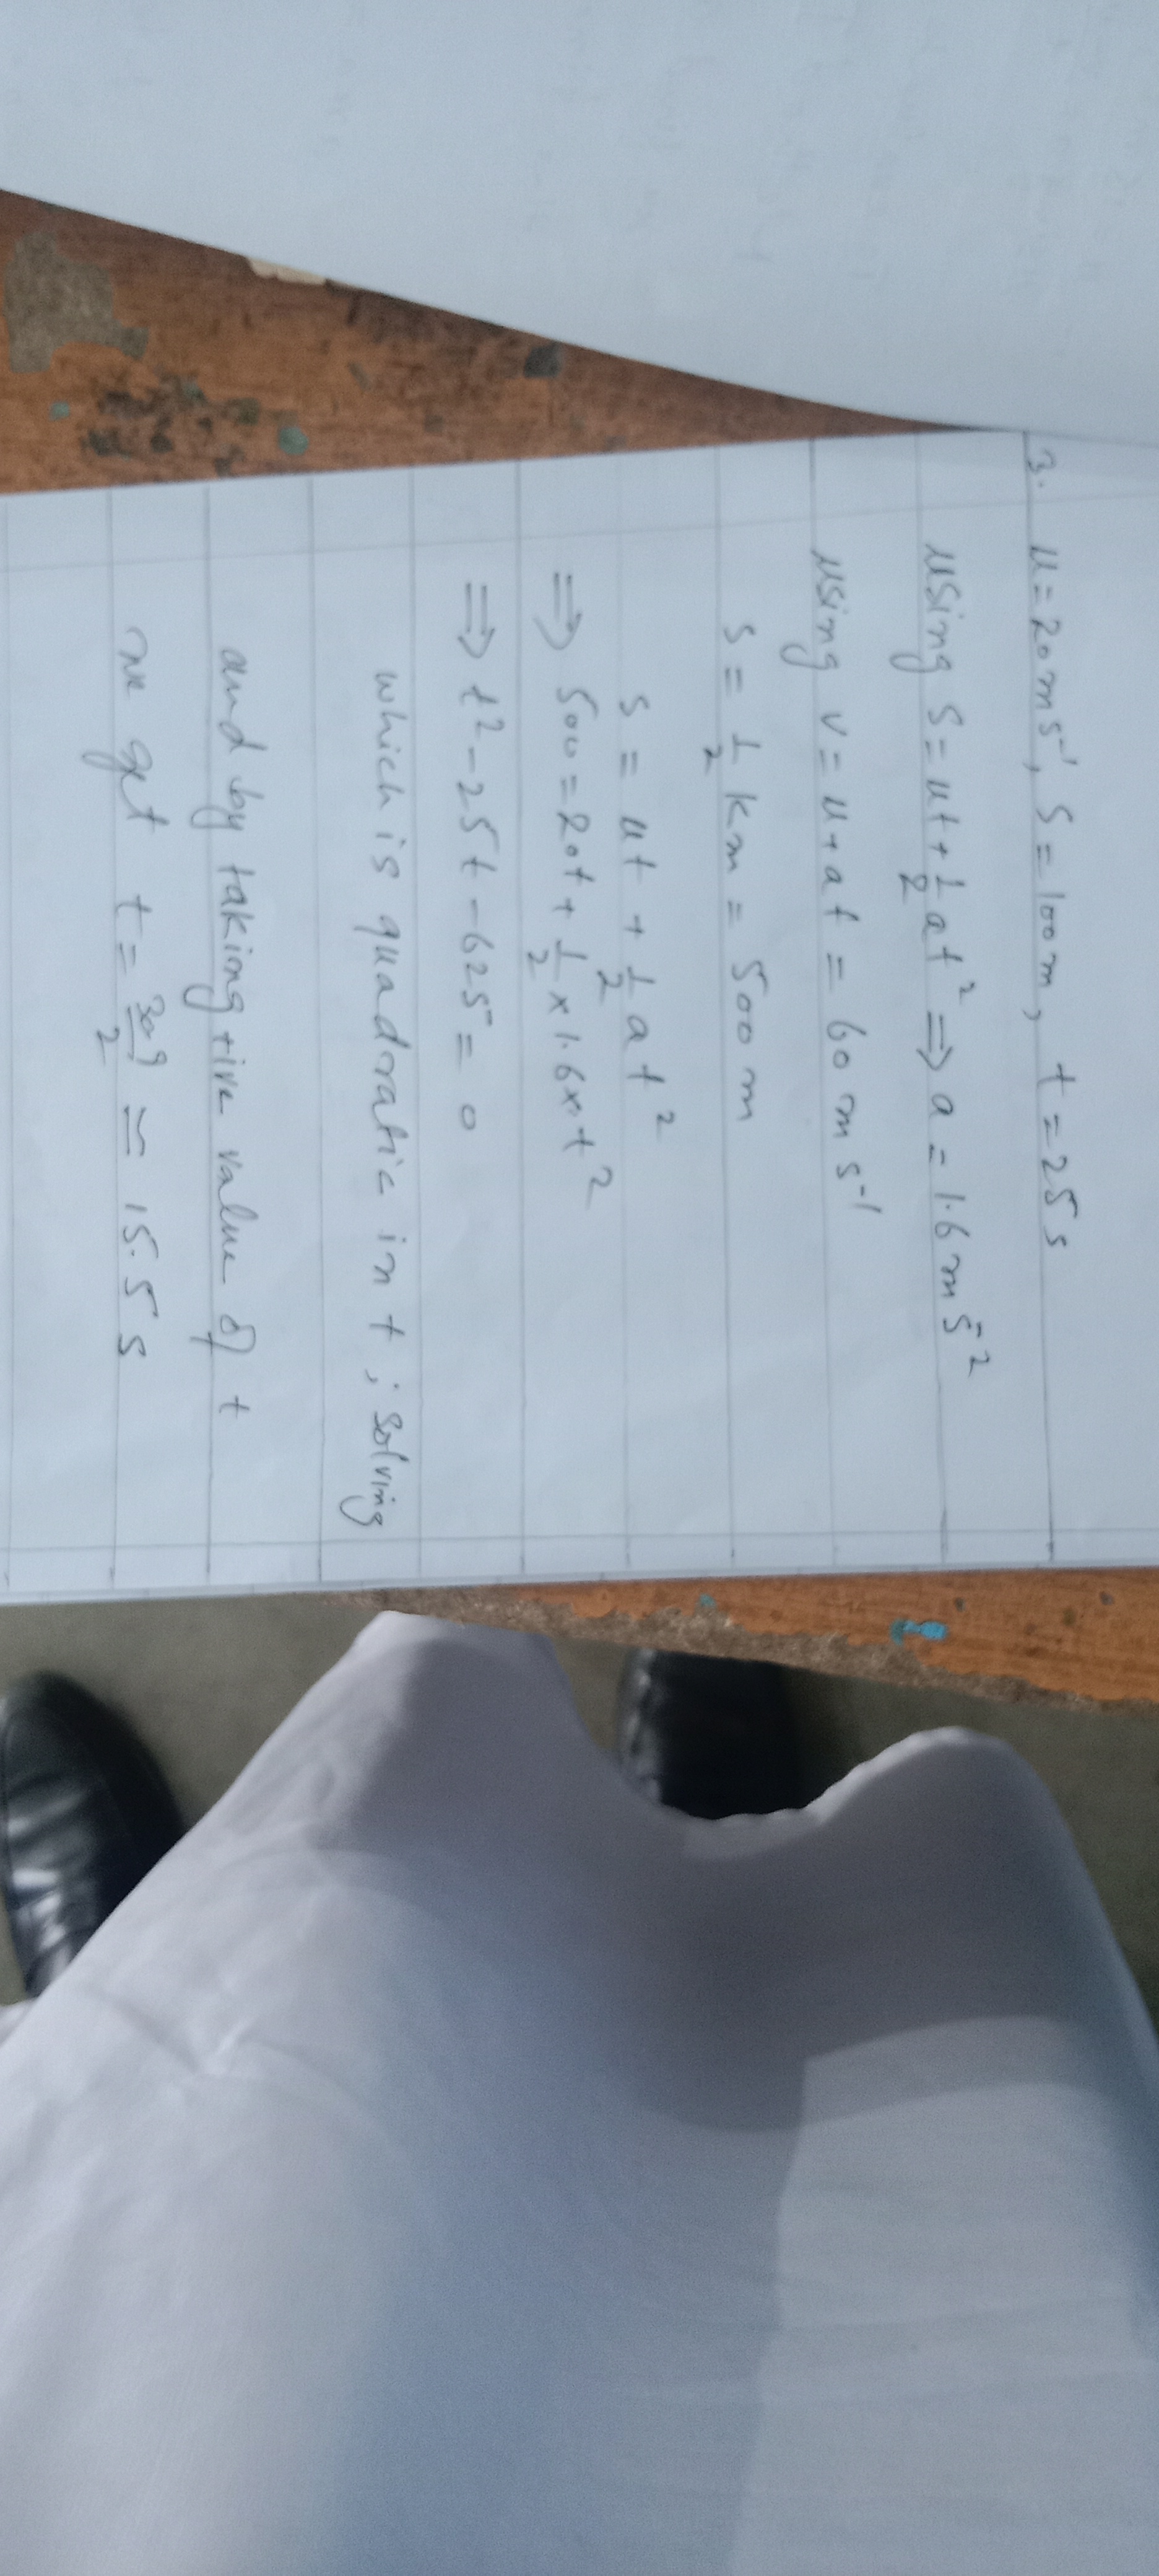 3. u = 20 m s⁻¹, S = 100 m, t = 25 s
using S = ut + 1/2 at² ⇒ a = 1.6 m s⁻²
using v = u + at = 60 m s⁻¹
s = 1/2 km = 500 m
s = ut + 1/2 at²
⇒ 500 = 20t + 1/2 × 1.6 × t²
⇒ t² - 25t - 625 = 0
which is quadratic in t ; solving
and by taking +ive value of t
we get t = 30.9/2 ≃ 15.5 s